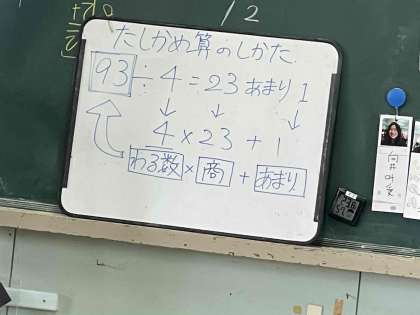 たしかめ算のしかた
93÷4=23あまり1
4×23+1
わる数×商+あまり
12